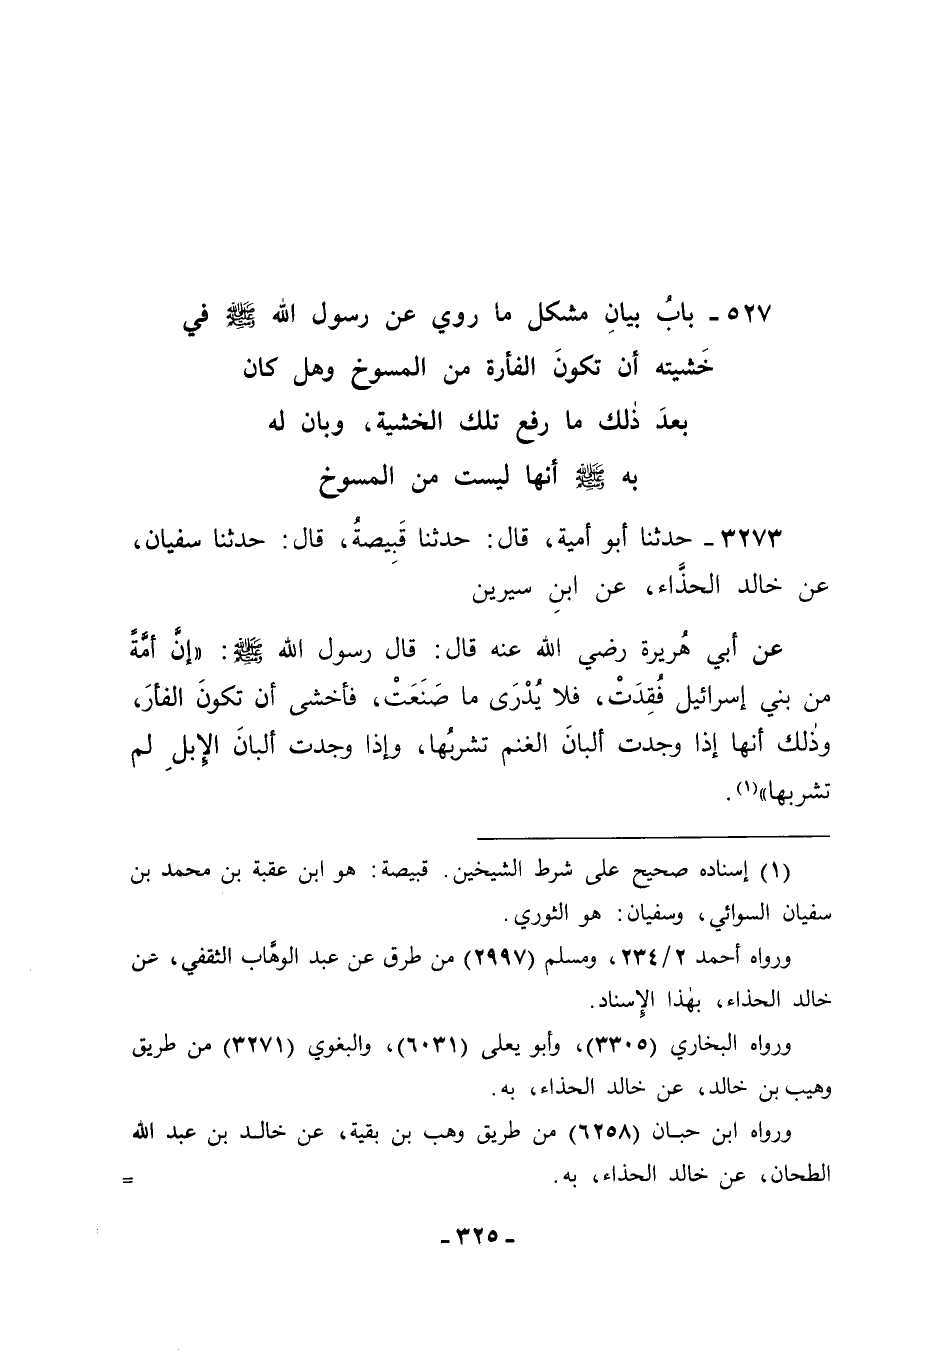 ٥٢٧ ـ بابُ بيانِ مشكل ما روي عن رسول الله ﷺ في
خَشيته أن تكونَ الفأرة من المسوخ وهل كان
بعدَ ذٰلك ما رفع تلك الخشية، وبان له
به ﷺ أنها ليست من المسوخ
٣٢٧٣ ـ حدثنا أبو أمية، قال: حدثنا قَبِيصةُ، قال: حدثنا سفيان،
عن خالد الحذَّاء، عن ابنِ سيرين
عن أبي هُريرة رضي الله عنه قال: قال رسول الله ﷺ: «إنَّ أمَّةً
من بني إسرائيل فُقِدَتْ، فلا يُدْرَى ما صَنَعَتْ، فأخشى أن تكونَ الفأرَ،
وذٰلك أنها إذا وجدت ألبانَ الغنم تشربُها، وإذا وجدت ألبانَ الإِبلِ لم
تشربها»(١).
(١) إسناده صحيح على شرط الشيخين. قبيصة: هو ابن عقبة بن محمد بن
سفيان السوائي، وسفيان: هو الثوري.
ورواه أحمد ٢٣٤/٢، ومسلم (٢٩٩٧) من طرق عن عبد الوهَّاب الثقفي، عن
خالد الحذاء، بهٰذا الإِسناد.
ورواه البخاري (٣٣٠٥)، وأبو يعلى (٦٠٣١)، والبغوي (٣٢٧١) من طريق
وهيب بن خالد، عن خالد الحذاء، به.
ورواه ابن حبان (٦٢٥٨) من طريق وهب بن بقية، عن خالد بن عبد الله
الطحان، عن خالد الحذاء، به. =
ـ ٣٢٥ ـ